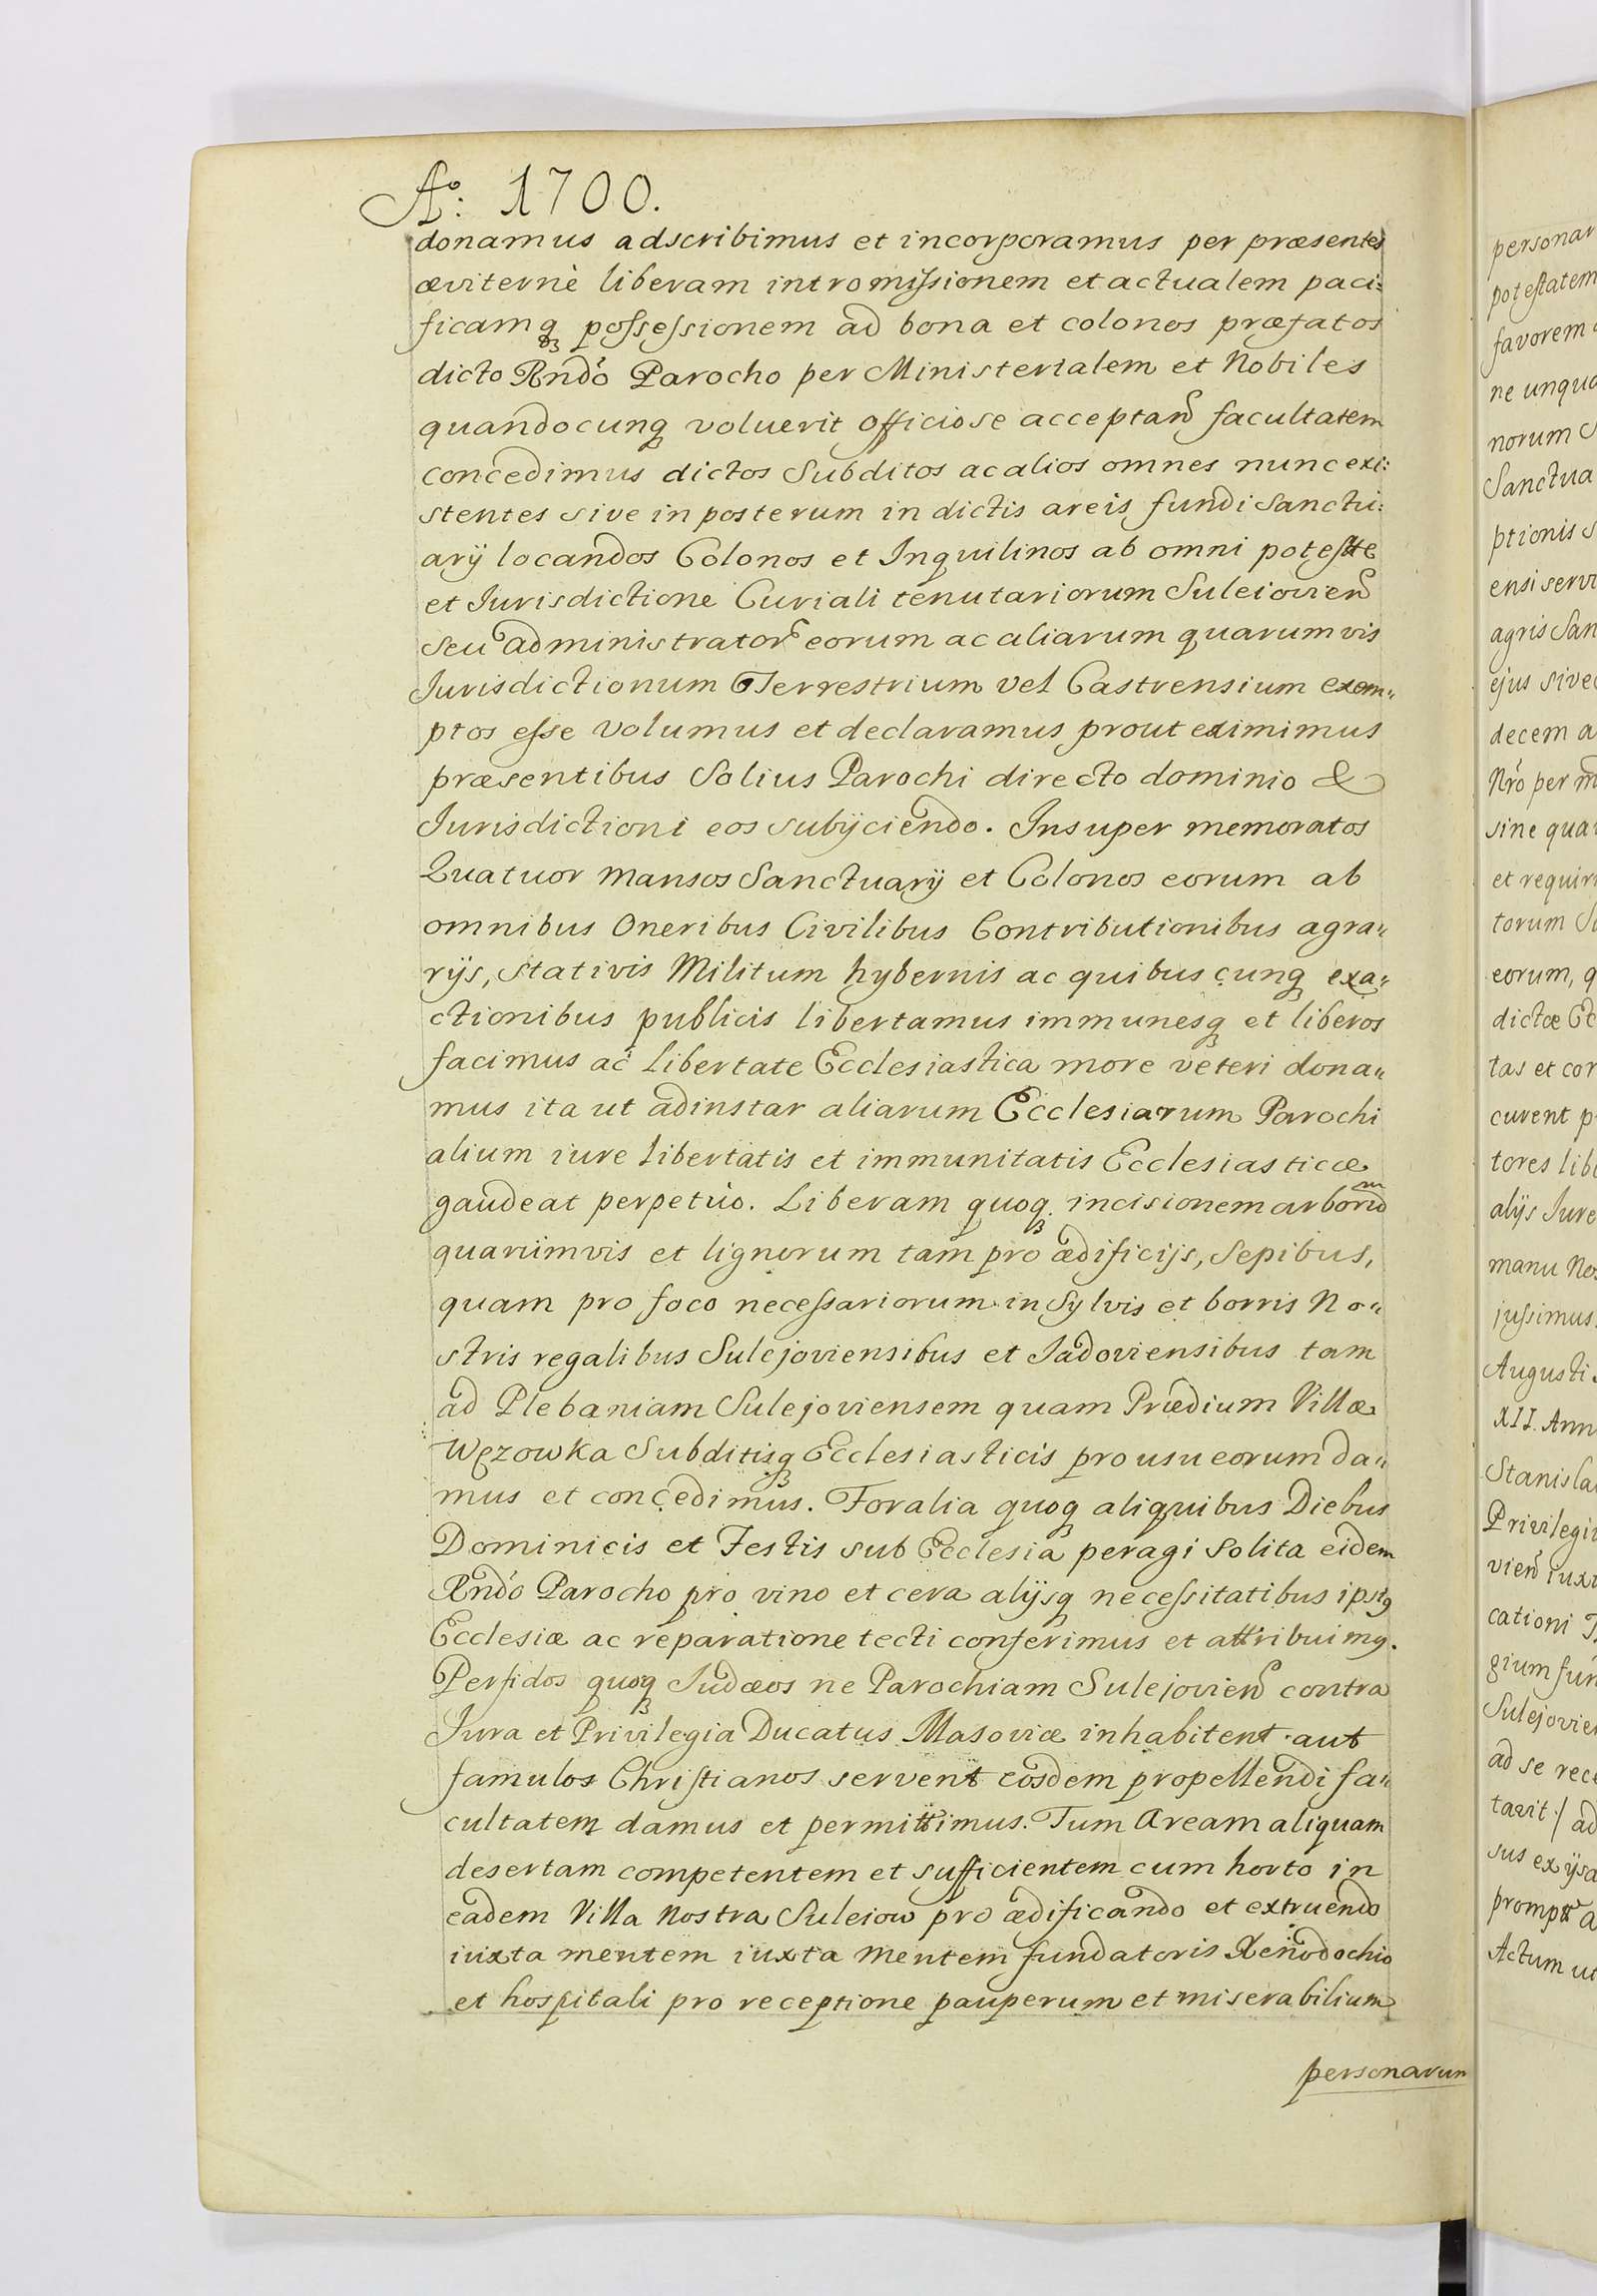 Aº: 1700.
donamus adscribimus et incorporamus per præsentes
æviternè liberam intromissionem et actualem paci:
ficamq3 possessionem ad bona et colonos præfatos
dicto Rndo Parocho per Ministerialem et Nobiles
quandocunq3 voluerit officiose acceptan facultatem
concedimus dictos Subditos ac alios omnes nunc exi:
stentes sive in posterum in dictis areis fundi Sanctu:
arij locandos Colonos et Inquilinos ab omni potestte
et Iurisdictione Curiali tenutariorum Suleiovien
seu administrator eorum ac aliarum quarumvis
Iurisdictionum Terrestrium vel Castrensium exem„
ptos esse volumus et declaramus prout eximimus
præsentibus Solius Parochi directo dominio &
Iurisdictioni eos subijciendo. Insuper memoratos
Quatuor Mansos Sanctuarij et Colonos eorum ab
omnibus Oneribus Civilibus Contributionibus agra„
rijs, Stativis Militum hybernis ac quibuscunq3 exa„
ctionibus publicis libertamus immunesq3 et liberos
facimus ac libertate Ecclesiastica more veteri dona„
mus ita ut adinstar aliarum Ecclesiarum Parochi
alium iure libertatis et immunitatis Ecclesiasticæ
gaudeat perpetuo. Liberam quoq3 incisionem arborum
quarumvis et lignorum tam pro ædificijs, Sepibus,
quam pro foco necessariorum in Sylvis et borris No„
stris regalibus Sulejoviensibus et Jadoviensibus tam
ad Plebaniam Sulejoviensem quam Prædium Villæ
Węzowka Subditisq3 Ecclesiasticis pro usu eorum da„
mus et concedimus. Foralia quoq3 aliquibus Diebus
Dominicis et Festis sub Ecclesia peragi solita eidem
Rndo Parocho pro vino et cera alijsq3 necessitatibus ipsi9
Ecclesiæ ac reparatione tecti conferimus et attribuim9.
Perfidos quoq3 Judæos ne Parochiam Sulejovien contra
Iura et Privilegia Ducatus Masoviæ inhabitent aut
famulos Christianos servent eosdem propellendi fa„
cultatem damus et permittimus. Tum Aream aliquam
desertam competentem et sufficientem cum horto in
eadem Villa Nostra Suleiow pro ædificando et extruendo
iuxta mentem iuxta mentem fundatoris Xenodochio
et hospitali pro receptione pauperum et miserabilium
personarum
personar
potestatem
favorem
ne unqua
norum
Sanctua
ptionis s
ensi servi
agris San
ejus sive
decem a
Nro per m
sine qua
et requir
torum Su
eorum, q
dictæ Ec
tas et cor
curent p
tores lib
alijs Iure
manu No
jussimus.
Augusti
XII. Ann
Stanisla
Privilegi
vien iux
cationi
gium fun
Sulejovie
ad se rece
tavit / ad
sus ex ijsd
prompt a
Actum ut